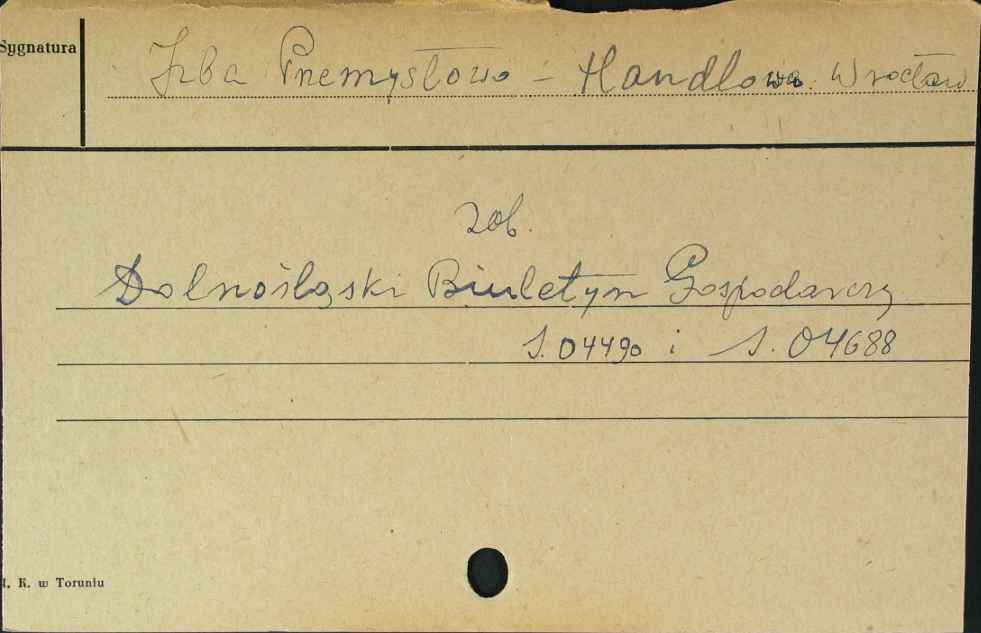 Sygnatura
Izba Przemysłowo - Handlowa. Wrocław
zob.
Dolnośląski Biuletyn Gospodarczy
S. 04490 i S. 04688
I. K. w Toruniu